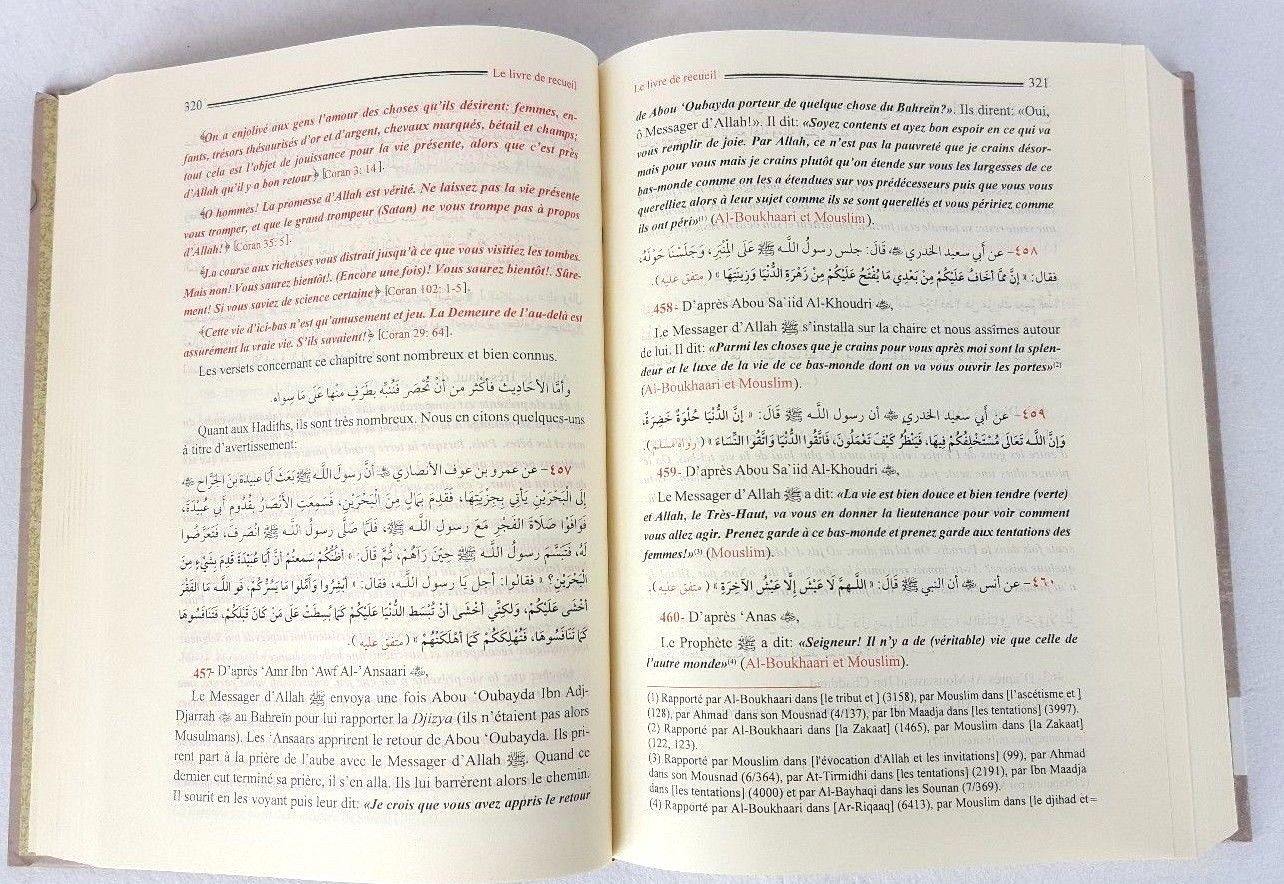 320 Le livre de recueil
﴾On a enjolivé aux gens l'amour des choses qu'ils désirent: femmes, en-
fants, trésors thésaurisés d'or et d'argent, chevaux marqués, bétail et champs;
tout cela est l'objet de jouissance pour la vie présente, alors que c'est près
d'Allah qu'il y a bon retour﴿ [Coran 3: 14].
﴾O hommes! La promesse d'Allah est vérité. Ne laissez pas la vie présente
vous tromper, et que le grand trompeur (Satan) ne vous trompe pas à propos
d'Allah!﴿ [Coran 35: 5].
﴾La course aux richesses vous distrait jusqu'à ce que vous visitiez les tombes.
Mais non! Vous saurez bientôt!. (Encore une fois)! Vous saurez bientôt!. Sûre-
ment! Si vous saviez de science certaine﴿ [Coran 102: 1-5].
﴾Cette vie d'ici-bas n'est qu'amusement et jeu. La Demeure de l'au-delà est
assurément la vraie vie. S'ils savaient!﴿ [Coran 29: 64].
Les versets concernant ce chapitre sont nombreux et bien connus.
وأمَّا الأحَادِيثُ فأكثَر مِن أنْ تُحْصَر فَنُنَبِّه بِطَرَفٍ مِنْهَا عَلَى مَا سِوَاه.
Quant aux Hadiths, ils sont très nombreux. Nous en citons quelques-uns
à titre d'avertissement:
٤٥٧– عن عمرو بن عوف الأنصاري ﷛ أنَّ رسولَ اللَّـه ﷺ بَعَثَ أبا عبيدة بنَ الجَرَّاح ﷛
إلَى البَحْرَينِ يَأتِي بِجِزْيَتِهَا، فَقَدِمَ بِمَالٍ مِنَ الْبَحْرَينِ، فَسَمِعَتِ الأَنْصَارُ بقُدُومِ أبِي عُبَيْدَةَ،
فَوَافَوْا صَلَاةَ الفَجْرِ مَعَ رَسولِ اللَّـه ﷺ، فَلَمَّا صَلَّى رسولُ اللَّـه ﷺ انْصَرَفَ، فَتَعَرَّضُوا
لَهُ، فَتَبَسَّمَ رسولُ اللَّـه ﷺ حِيْنَ رَآهُمْ، ثُمَّ قَالَ: « أظُنُّكُمْ سَمعتُمْ أنَّ أبَا عُبَيْدَةَ قَدِمَ بِشَيْءٍ مِنَ
الْبَحْرَيْنِ؟ » فقالوا: أجل يَا رسول اللَّـه، فقال: « أبْشِرُوا وَأَمِّلُوا مَا يَسُرُّكُمْ، فَو اللَّـه مَا الفَقْرَ
أخْشَى عَلَيْكُمْ، وَلَكِنِّي أخْشَى أنْ تُبْسَط الدُّنْيَا عَلَيْكُمْ كَمَا بُسِطَتْ عَلَى مَنْ كَانَ قَبْلَكُمْ، فَتَنَافَسُوهَا
كَمَا تَنَافَسُوهَا، فَتُهْلِكَكُمْ كَمَا أهْلَكَتْهُمْ » ( متفق عليه ).
457- D'après 'Amr Ibn 'Awf Al-'Ansaari ﷛,
Le Messager d'Allah ﷺ envoya une fois Abou 'Oubayda Ibn Adj-
Djarrah ﷛ au Bahreïn pour lui rapporter la Djizya (ils n'étaient pas alors
Musulmans). Les 'Ansaars apprirent le retour de Abou 'Oubayda. Ils pri-
rent part à la prière de l'aube avec le Messager d'Allah ﷺ. Quand ce
dernier eut terminé sa prière, il s'en alla. Ils lui barrèrent alors le chemin.
Il sourit en les voyant puis leur dit: «Je crois que vous avez appris le retour
Le livre de recueil 321
de Abou 'Oubayda porteur de quelque chose du Bahreïn?». Ils dirent: «Oui,
ô Messager d'Allah!». Il dit: «Soyez contents et ayez bon espoir en ce qui va
vous remplir de joie. Par Allah, ce n'est pas la pauvreté que je crains désor-
mais pour vous mais je crains plutôt qu'on étende sur vous les largesses de ce
bas-monde comme on les a étendues sur vos prédécesseurs puis que vous vous
querelliez alors à leur sujet comme ils se sont querellés et vous péririez comme
ils ont péri»(1) (Al-Boukhaari et Mouslim).
٤٥٨– عن أبي سعيد الخدري ﷛ قَالَ: جلس رسولُ اللَّـه ﷺ عَلَى الْمِنْبَرِ، وَجَلَسْنَا حَوْلَهُ،
فقال: « إنَّ مَّا أخَافُ عَلَيْكُمْ مِنْ بَعْدِي مَا يُفْتَحُ عَلَيْكُمْ مِنْ زَهْرَةِ الدُّنْيَا وَزِينَتِهَا » ( متفق عليه ).
458- D'après Abou Sa'iid Al-Khoudri ﷛,
Le Messager d'Allah ﷺ s'installa sur la chaire et nous assîmes autour
de lui. Il dit: «Parmi les choses que je crains pour vous après moi sont la splen-
deur et le luxe de la vie de ce bas-monde dont on va vous ouvrir les portes»(2)
(Al-Boukhaari et Mouslim).
٤٥٩– عن أبي سعيد الخدري ﷛ أن رسول اللَّـه ﷺ قَالَ: « إنَّ الدُّنْيَا حُلْوَةٌ خَضِرَةٌ،
وَإنَّ اللَّـه تَعَالَى مُسْتَخْلِفُكُمْ فِيهَا، فَيَنْظُرُ كَيْفَ تَعْمَلُونَ، فَاتَّقُوا الدُّنْيَا وَاتَّقُوا النِّسَاءَ » ( رواه مسلم ).
459- D'après Abou Sa'iid Al-Khoudri ﷛,
Le Messager d'Allah ﷺ a dit: «La vie est bien douce et bien tendre (verte)
et Allah, le Très-Haut, va vous en donner la lieutenance pour voir comment
vous allez agir. Prenez garde à ce bas-monde et prenez garde aux tentations des
femmes!»(3) (Mouslim).
٤٦٠– عن أنس ﷛ أن النبي ﷺ قَالَ: « اللَّـهمَّ لَا عَيْشَ إلَّا عَيْشُ الآخِرَةِ » ( متفق عليه ).
460- D'après 'Anas ﷛,
Le Prophète ﷺ a dit: «Seigneur! Il n'y a de (véritable) vie que celle de
l'autre monde»(4) (Al-Boukhaari et Mouslim).
(1) Rapporté par Al-Boukhaari dans [le tribut et ] (3158), par Mouslim dans [l'ascétisme et ]
(128), par Ahmad dans son Mousnad (4/137), par Ibn Maadja dans [les tentations] (3997).
(2) Rapporté par Al-Boukhaari dans [la Zakaat] (1465), par Mouslim dans [la Zakaat]
(122, 123).
(3) Rapporté par Mouslim dans [l'évocation d'Allah et les invitations] (99), par Ahmad
dans son Mousnad (6/364), par At-Tirmidhi dans [les tentations] (2191), par Ibn Maadja
dans [les tentations] (4000) et par Al-Bayhaqi dans les Sounan (7/369).
(4) Rapporté par Al-Boukhaari dans [Ar-Riqaaq] (6413), par Mouslim dans [le djihad et=